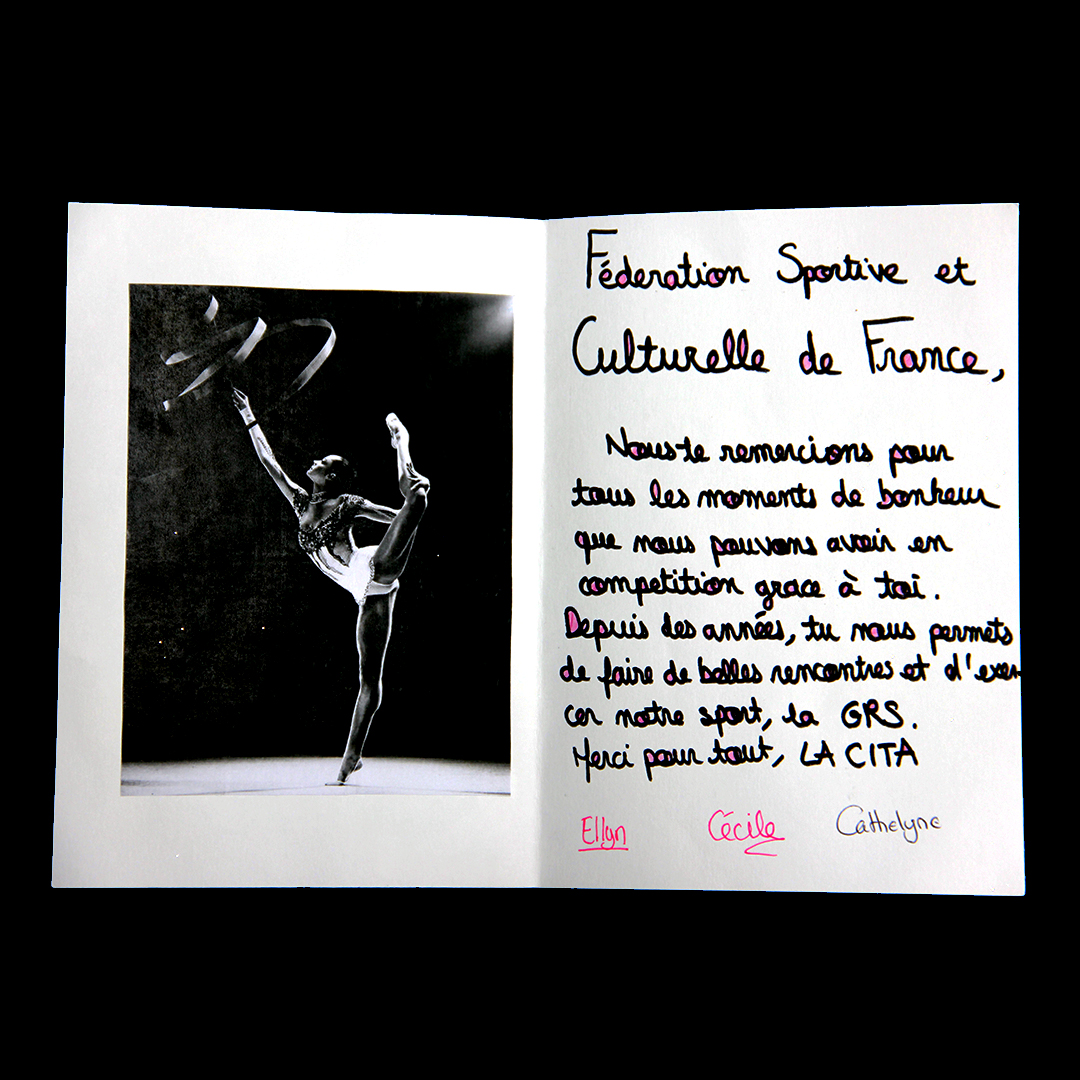 Féderation Sportive et
Culturelle de France,
Nous te remercions pour
tous les moments de bonheur
que nous pouvons avoir en
competition grace à toi.
Depuis des années, tu nous permets
de faire de belles rencontres et d'exer-
cer notre sport, la GRS.
Merci pour tout, LA CITA
Ellyn Cécile Cathelyne